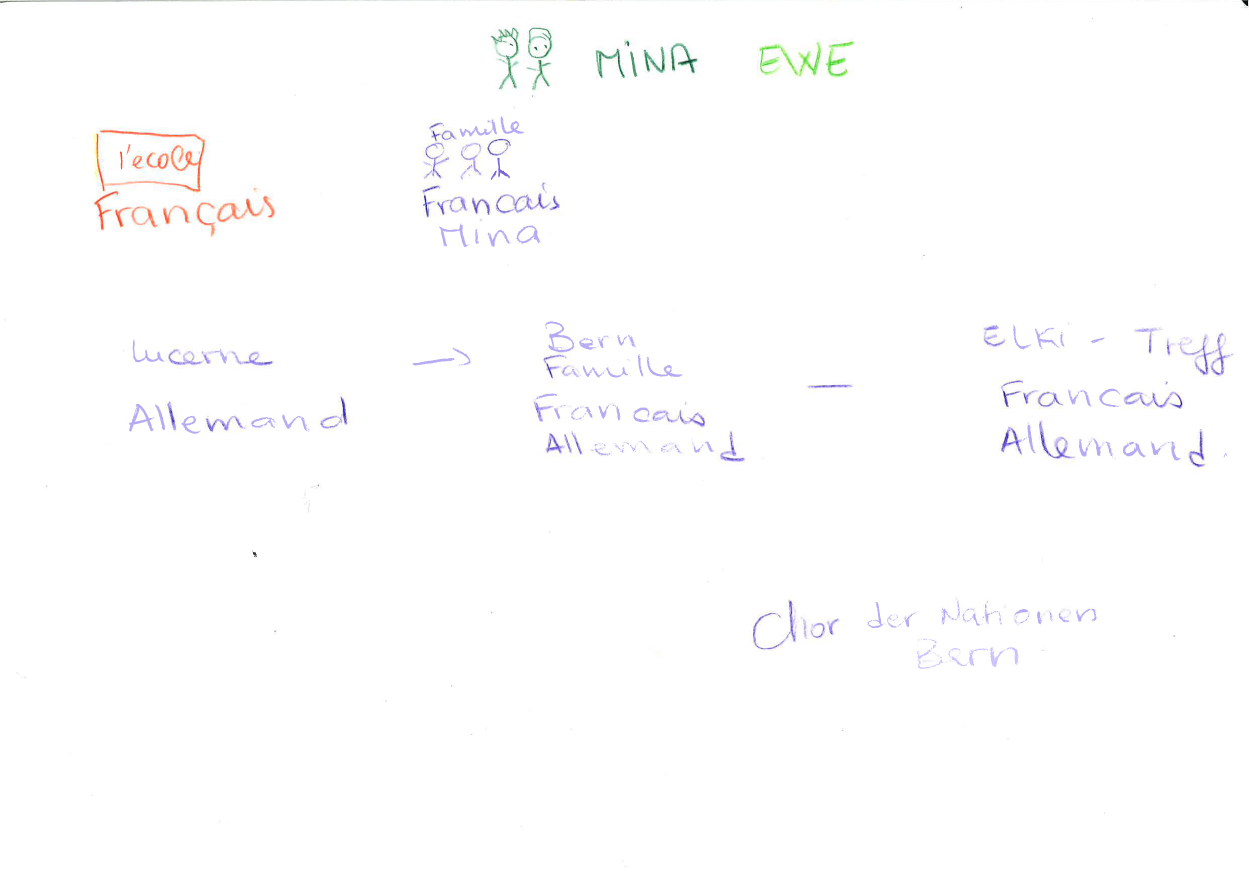 MiNA EWE
l'ecole
Français
Famille
Francais
Mina
Lucerne
Allemand
→
Bern
Famille
Francais
Allemand
—
ELKi - Treff
Francais
Allemand.
Chor der Nationen
Bern